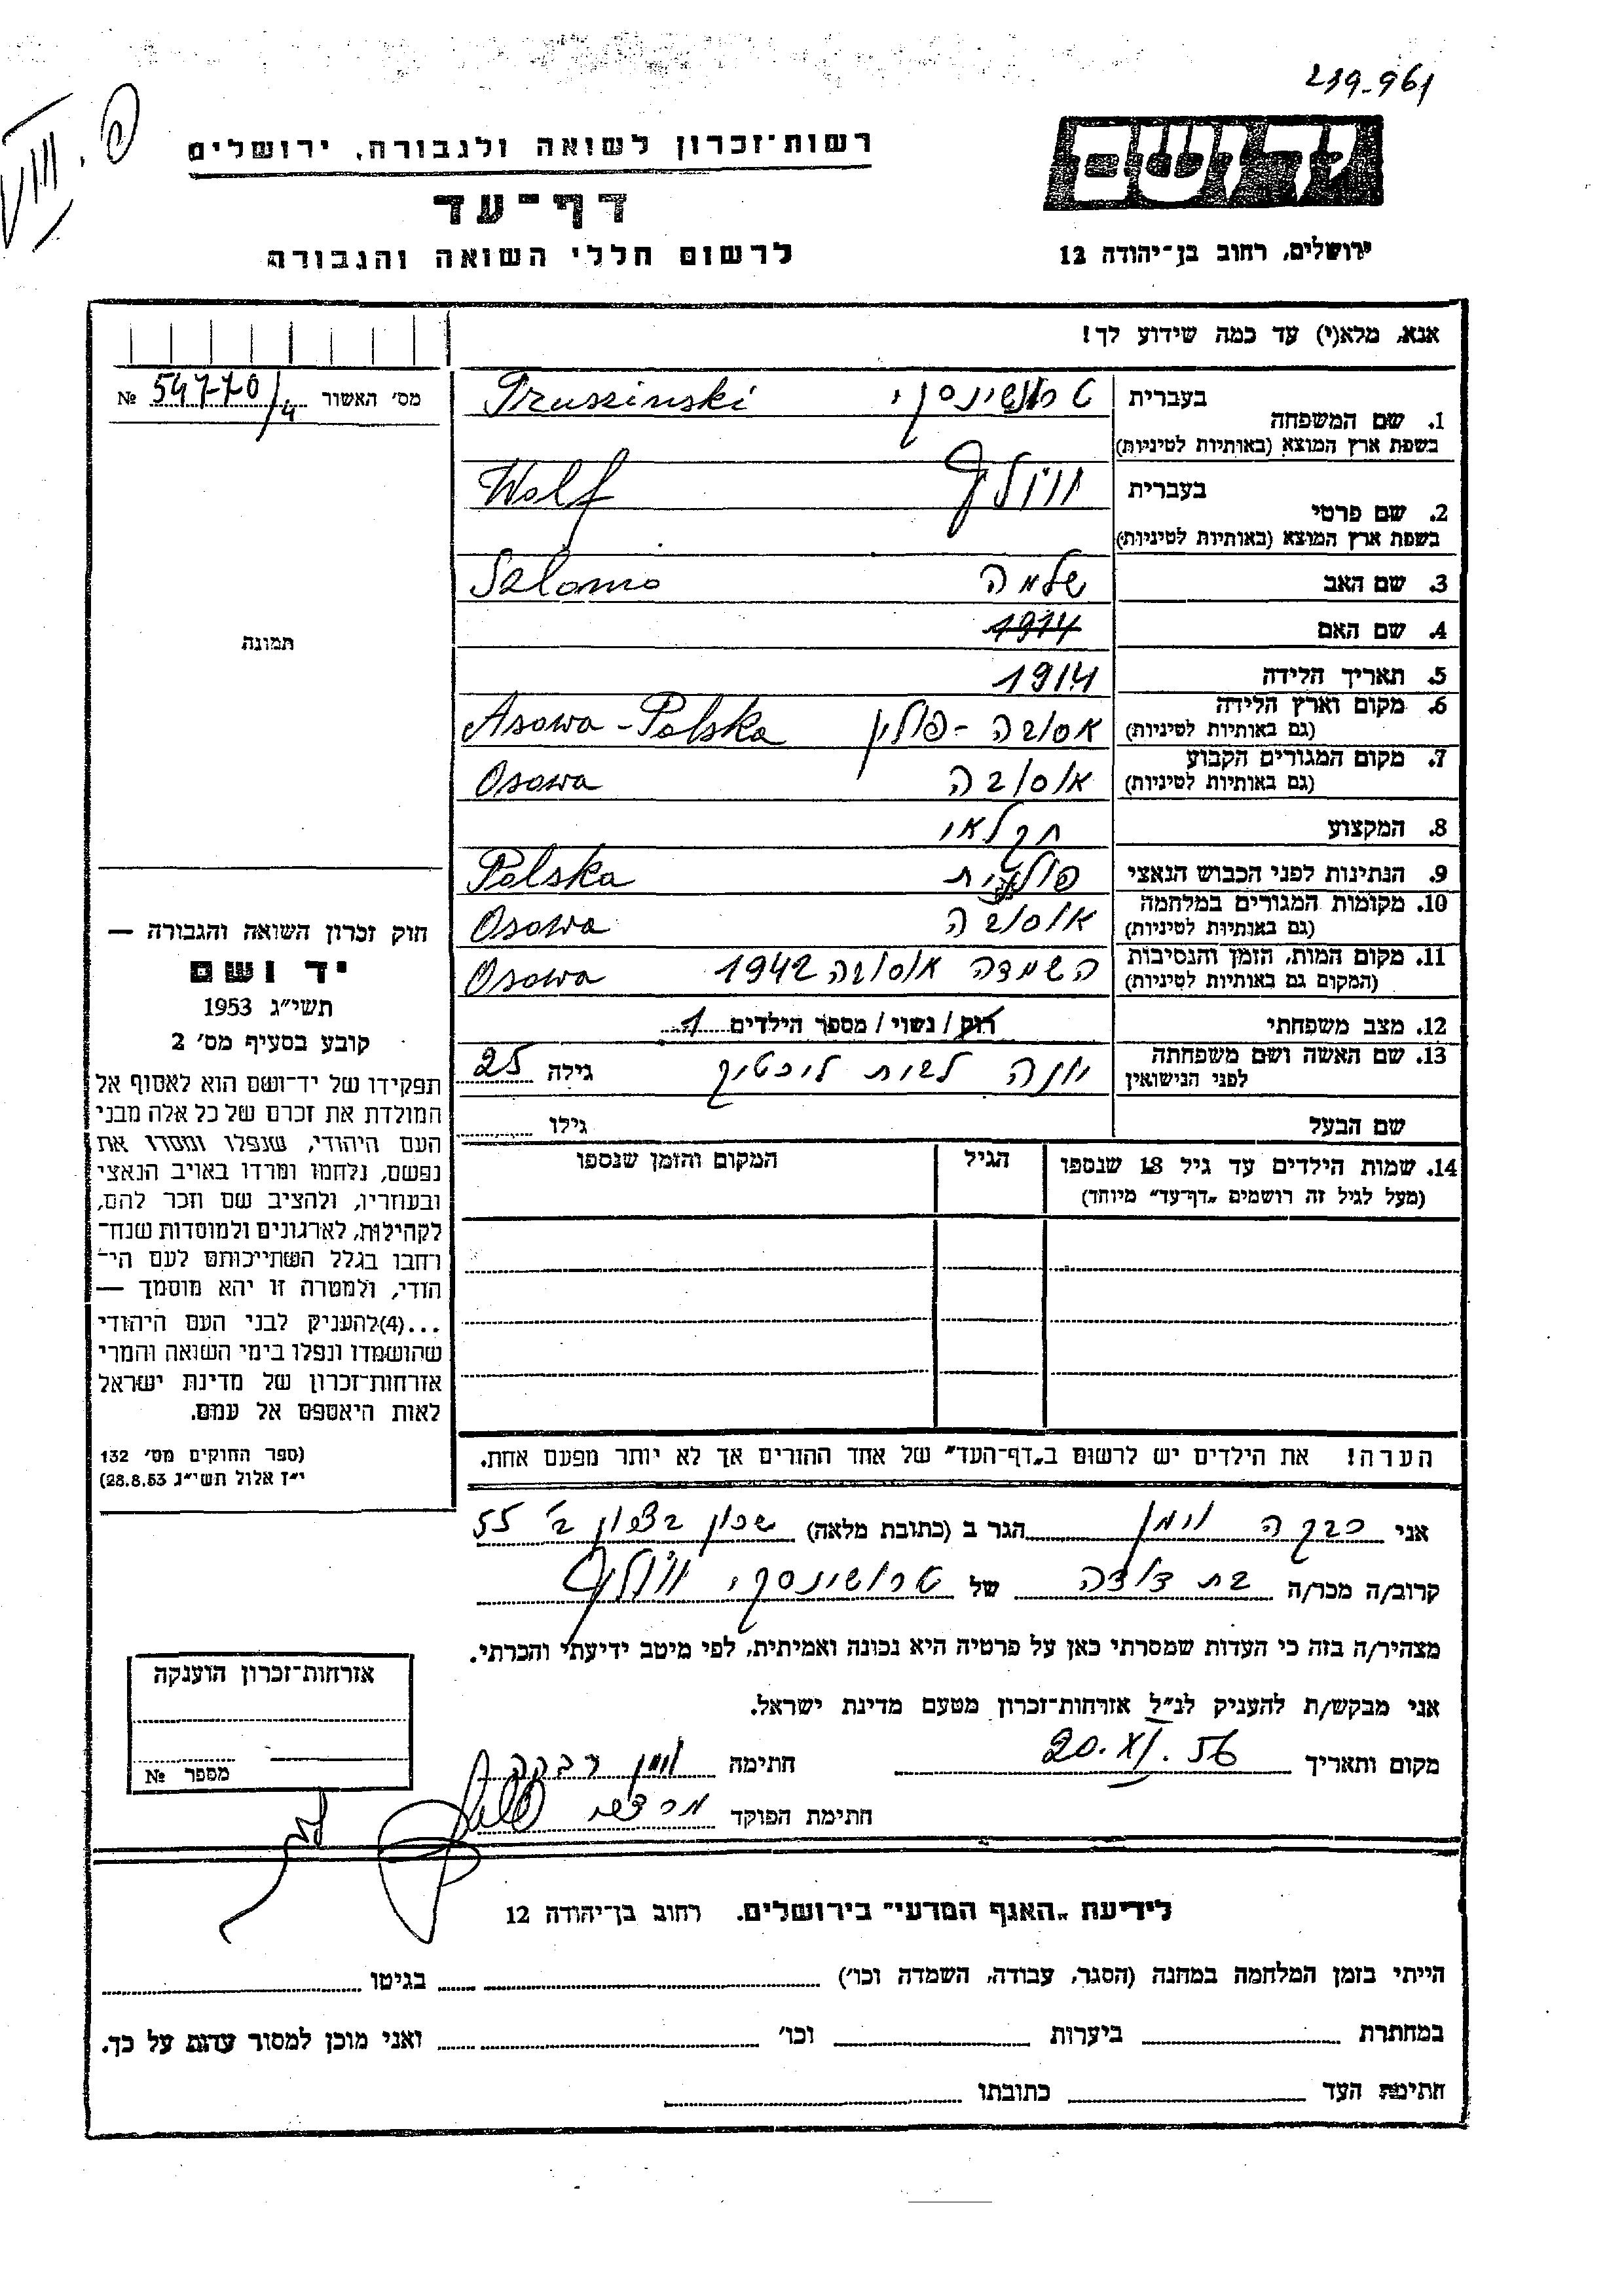 239-961
רשות־זכרון לשואה ולגבורה, ירושלים
דף־עד
לרשום חללי השואה והגבורה
יד ושם
ירושלים, רחוב בן־יהודה 12
אנא, מלא(י) עד כמה שידוע לך!
מס׳ האשור № 54770/4
1. שם המשפחה בעברית טרושינסקי Truszinski
בשפת ארץ המוצא (באותיות לטיניות)
2. שם פרטי בעברית וולף Wolf
בשפת ארץ המוצא (באותיות לטיניות)
3. שם האב שלמה Szlomo
4. שם האם 1914
5. תאריך הלידה 1914
6. מקום וארץ הלידה אסובה - פולין Asowa - Polska
(גם באותיות לטיניות)
7. מקום המגורים הקבוע אוסובה Osowa
(גם באותיות לטיניות)
8. המקצוע חקלאי
9. הנתינות לפני הכבוש הנאצי פולנית Polska
10. מקומות המגורים במלחמה אוסובה Osowa
(גם באותיות לטיניות)
11. מקום המות, הזמן והנסיבות השמדה אוסובה 1942 Osowa
(המקום גם באותיות לטיניות)
12. מצב משפחתי רוק / נשוי / מספר הילדים 1
13. שם האשה ושם משפחתה יונה לבית ליכטיק גילה 25
לפני הנישואין
שם הבעל גילו
14. שמות הילדים עד גיל 18 שנספו הגיל המקום והזמן שנספו
(מעל לגיל זה רושמים „דף־עד״ מיוחד)
הערה! את הילדים יש לרשום ב„דף־העד״ של אחד ההורים אך לא יותר מפעם אחת.
תמונה
חוק זכרון השואה והגבורה —
יד ושם
תשי״ג 1953
קובע בסעיף מס׳ 2
תפקידו של יד־ושם הוא לאסוף אל
המולדת את זכרם של כל אלה מבני
העם היהודי, שנפלו ומסרו את
נפשם, נלחמו ומרדו באויב הנאצי
ובעוזריו, ולהציב שם וזכר להם,
לקהילות, לארגונים ולמוסדות שנח־
רחבו בגלל השתייכותם לעם הי־
הודי, ולמטרה זו יהא מוסמך —
...(4)להעניק לבני העם היהודי
שהושמדו ונפלו בימי השואה והמרי
אזרחות־זכרון של מדינת ישראל
לאות היאספם אל עמם.
(ספר החוקים מס׳ 132
י״ז אלול תשי״ג 28.8.53)
אני רבקה וימן הגר ב (כתובת מלאה) שכון בצפון ב׳ 55
קרוב/ה מכר/ה בת דודה של טרושינסקי וולף
מצהיר/ה בזה כי העדות שמסרתי כאן על פרטיה היא נכונה ואמיתית, לפי מיטב ידיעתי והכרתי.
אני מבקש/ת להעניק לנ״ל אזרחות־זכרון מטעם מדינת ישראל.
מקום ותאריך 20.XI.56 חתימה וימן רבקה
חתימת הפוקד
אזרחות־זכרון הוענקה
מספר №
לידיעת „האגף המדעי״ בירושלים. רחוב בן־יהודה 12
הייתי בזמן המלחמה במחנה (הסגר, עבודה, השמדה וכו׳) בגיטו
במחתרת ביערות וכו׳ ואני מוכן למסור עדות על כך.
חתימת העד כתובתו